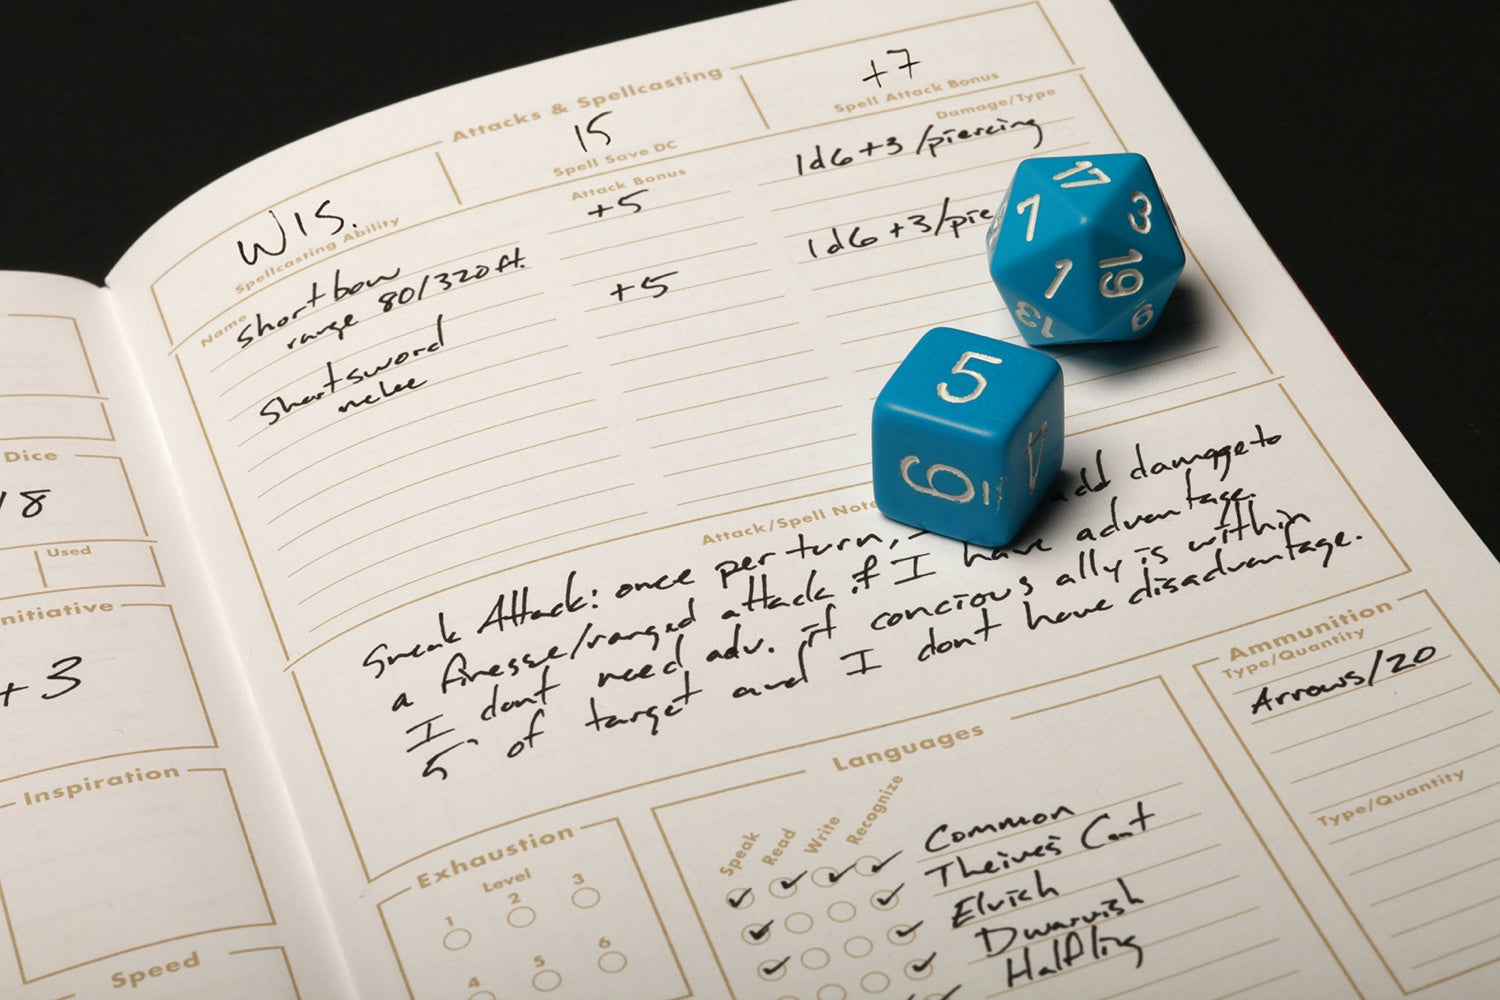 Attacks & Spellcasting
WIS.
Spellcasting Ability
15
Spell Save DC
+7
Spell Attack Bonus
Name
Attack Bonus
Damage/Type
Shortbow
range 80/320ft.
+5
1d6+3/piercing
Shortsword
melee
+5
1d6+3/pie
17
7
3
1
19
13
9
5
6
4
Attack/Spell Note
Sneak Attack: once per turn, I add damage to
a finesse/ranged attack if I have advantage.
I dont need adv. if concious ally is within
5' of target and I dont have disadvantage.
Dice
18
Used
nitiative
+3
Inspiration
Speed
Exhaustion
Level
1
2
3
4
5
6
Languages
Speak
Read
Write
Recognize
Common
Theives' Cant
Elvish
Dwarvish
Halfling
Ammunition
Type/Quantity
Arrows/20
Type/Quantity